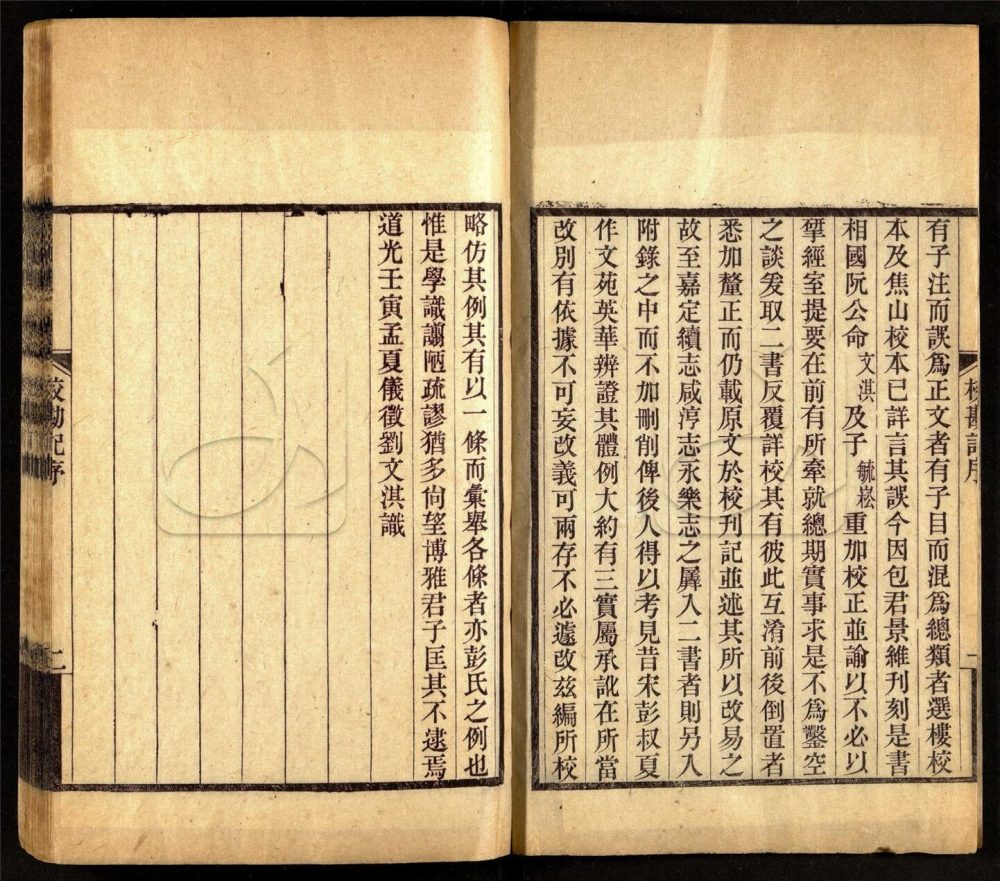 有子注而誤爲正文者有子目而混爲總類者選樓校
本及焦山校本已詳言其誤今因包君景維刊刻是書
相國阮公命文淇及子毓崧重加校正並諭以不必以
揅經室提要在前有所牽就總期實事求是不爲鑿空
之談爰取二書反覆詳校其有彼此互淆前後倒置者
悉加釐正而仍載原文於校刊記並述其所以改易之
故至嘉定續志咸淳志永樂志之羼入二書者則另入
附錄之中而不加刪削俾後人得以考見昔宋彭叔夏
作文苑英華辨證其體例大約有三實屬承訛在所當
改別有依據不可妄改義可兩存不必遽改茲編所校
校勘記序
一
略仿其例其有以一條而彙舉各條者亦彭氏之例也
惟是學識譾陋疏謬猶多尙望博雅君子匡其不逮焉
道光壬寅孟夏儀徵劉文淇識
校勘記序
二